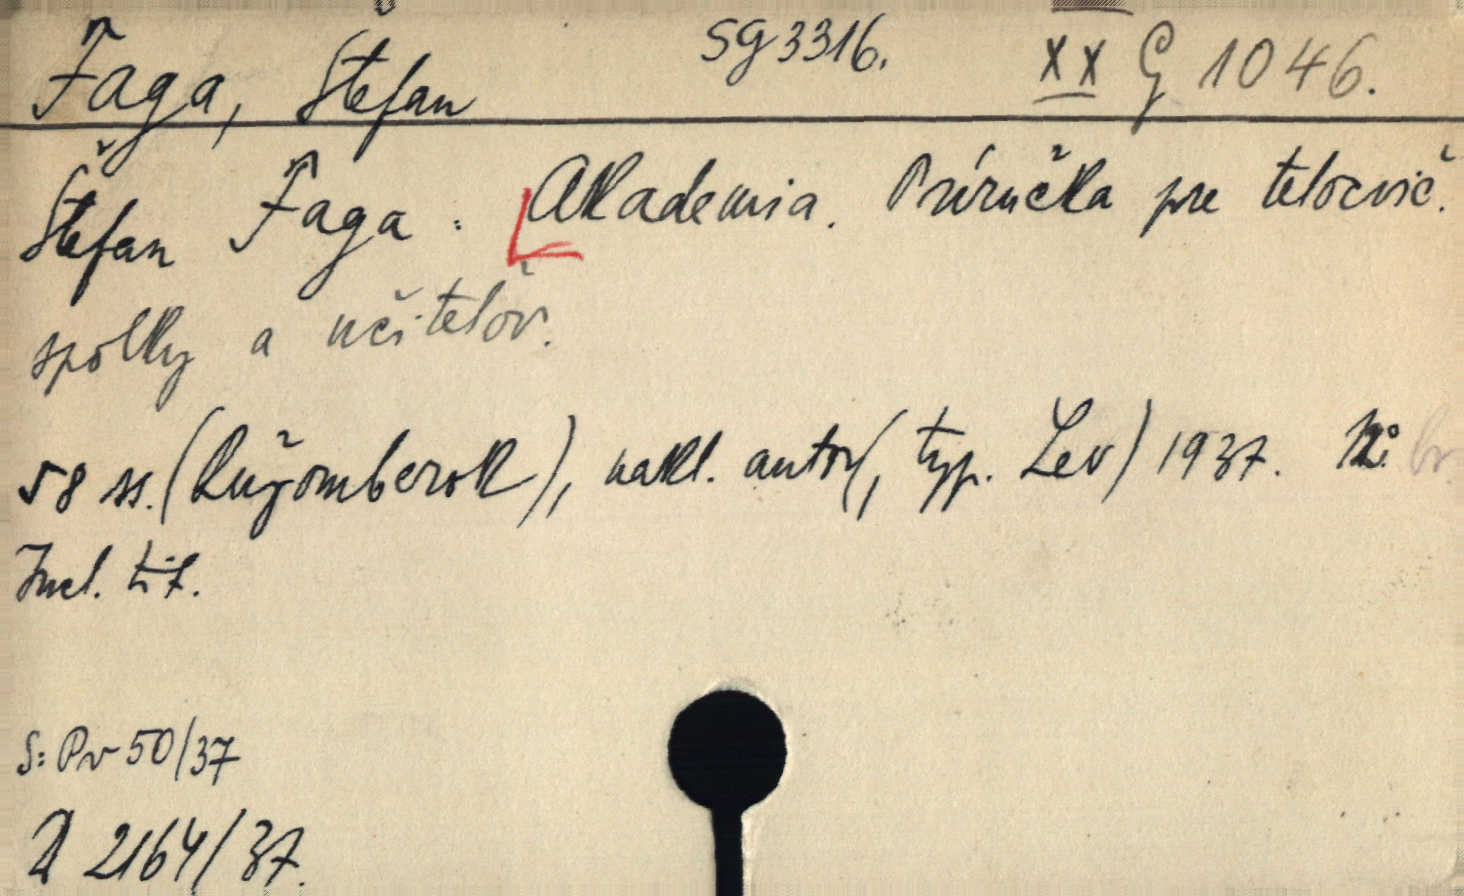 Faga, Štefan SG 3316. XX G 1046.
Štefan Faga: Akademia. Príručka pre telocvič.
spolky a učiteľov.
58 ss. (Ružomberok), nakl. autor(, typ. Lev) 1937. br
Incl. tit.
S: Pv 50/37
D 2164/37.